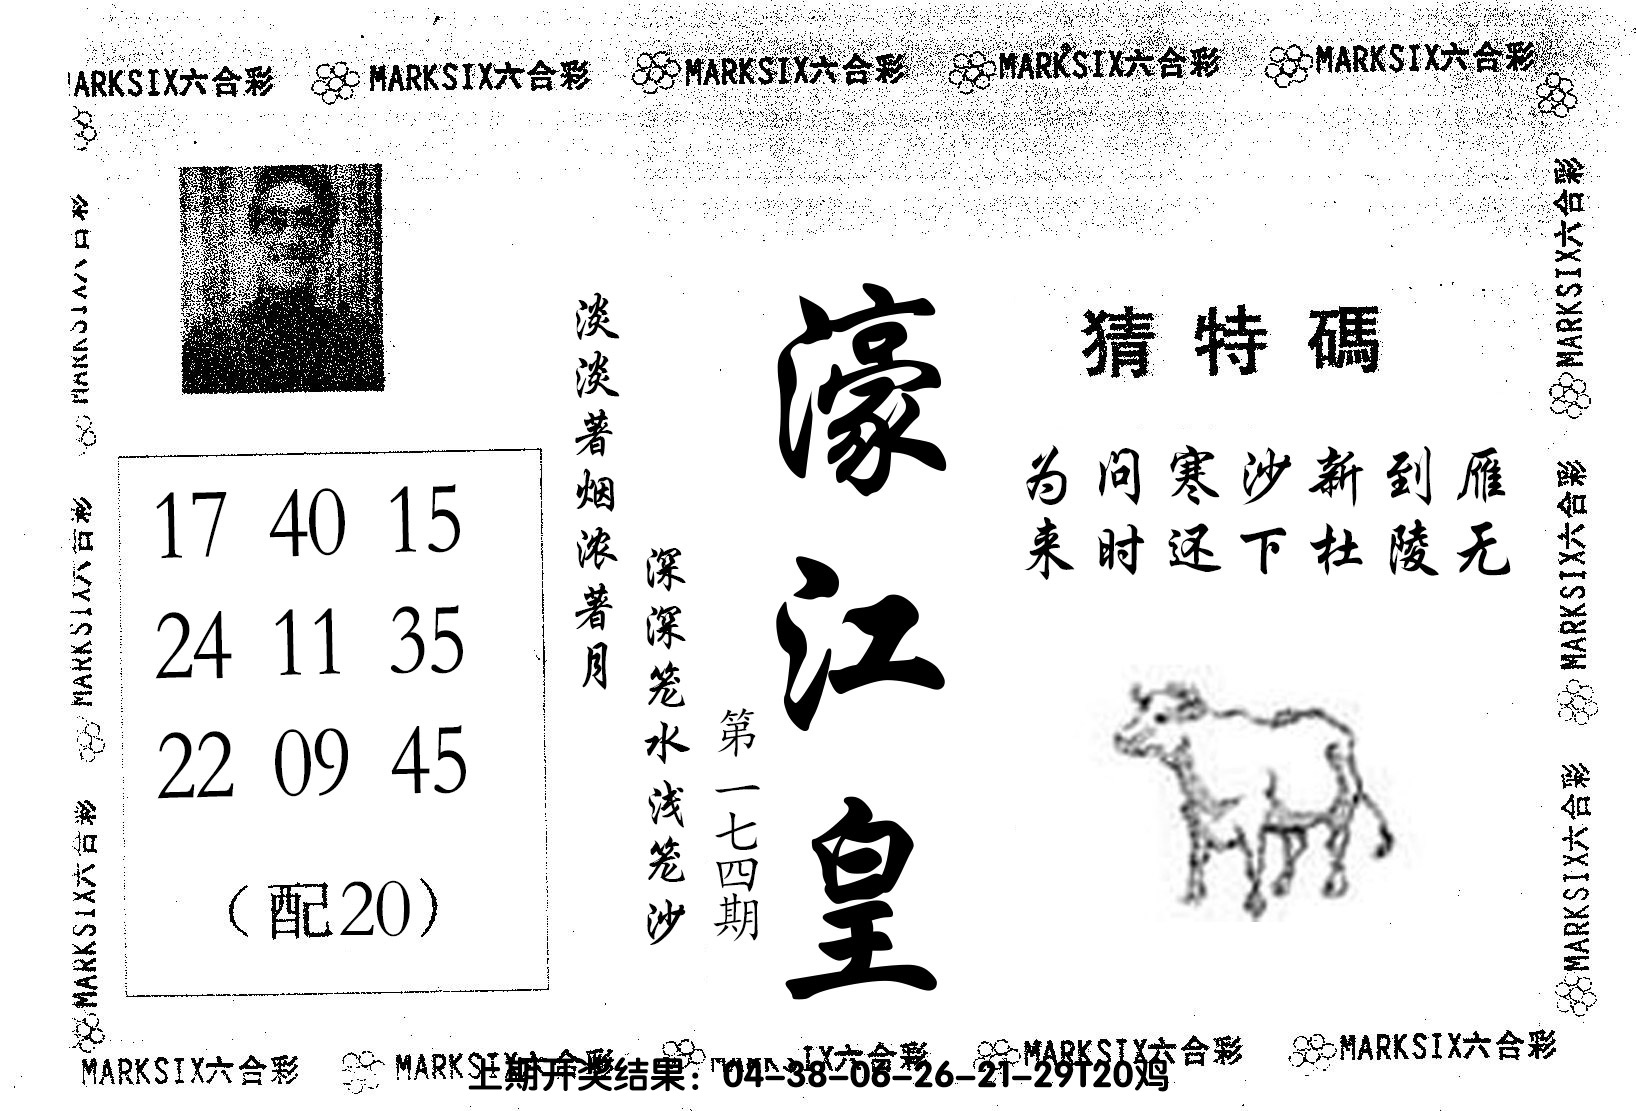 MARKSIX六合彩 MARKSIX六合彩 MARKSIX六合彩 MARKSIX六合彩
猜特碼
为问寒沙新到雁
来时还下杜陵无
濠江皇
第一七四期
淡淡著烟浓著月
深深笼水浅笼沙
17 40 15
24 11 35
22 09 45
（配20）
MARKSIX六合彩
MARKSIX六合彩
MARKSIX六合彩
MARKSIX六合彩
MARKSIX六合彩
MARKSIX六合彩 MARKSIX六合彩 MARKSIX六合彩 MARKSIX六合彩
上期开奖结果：04-38-06-26-21-29T20鸡